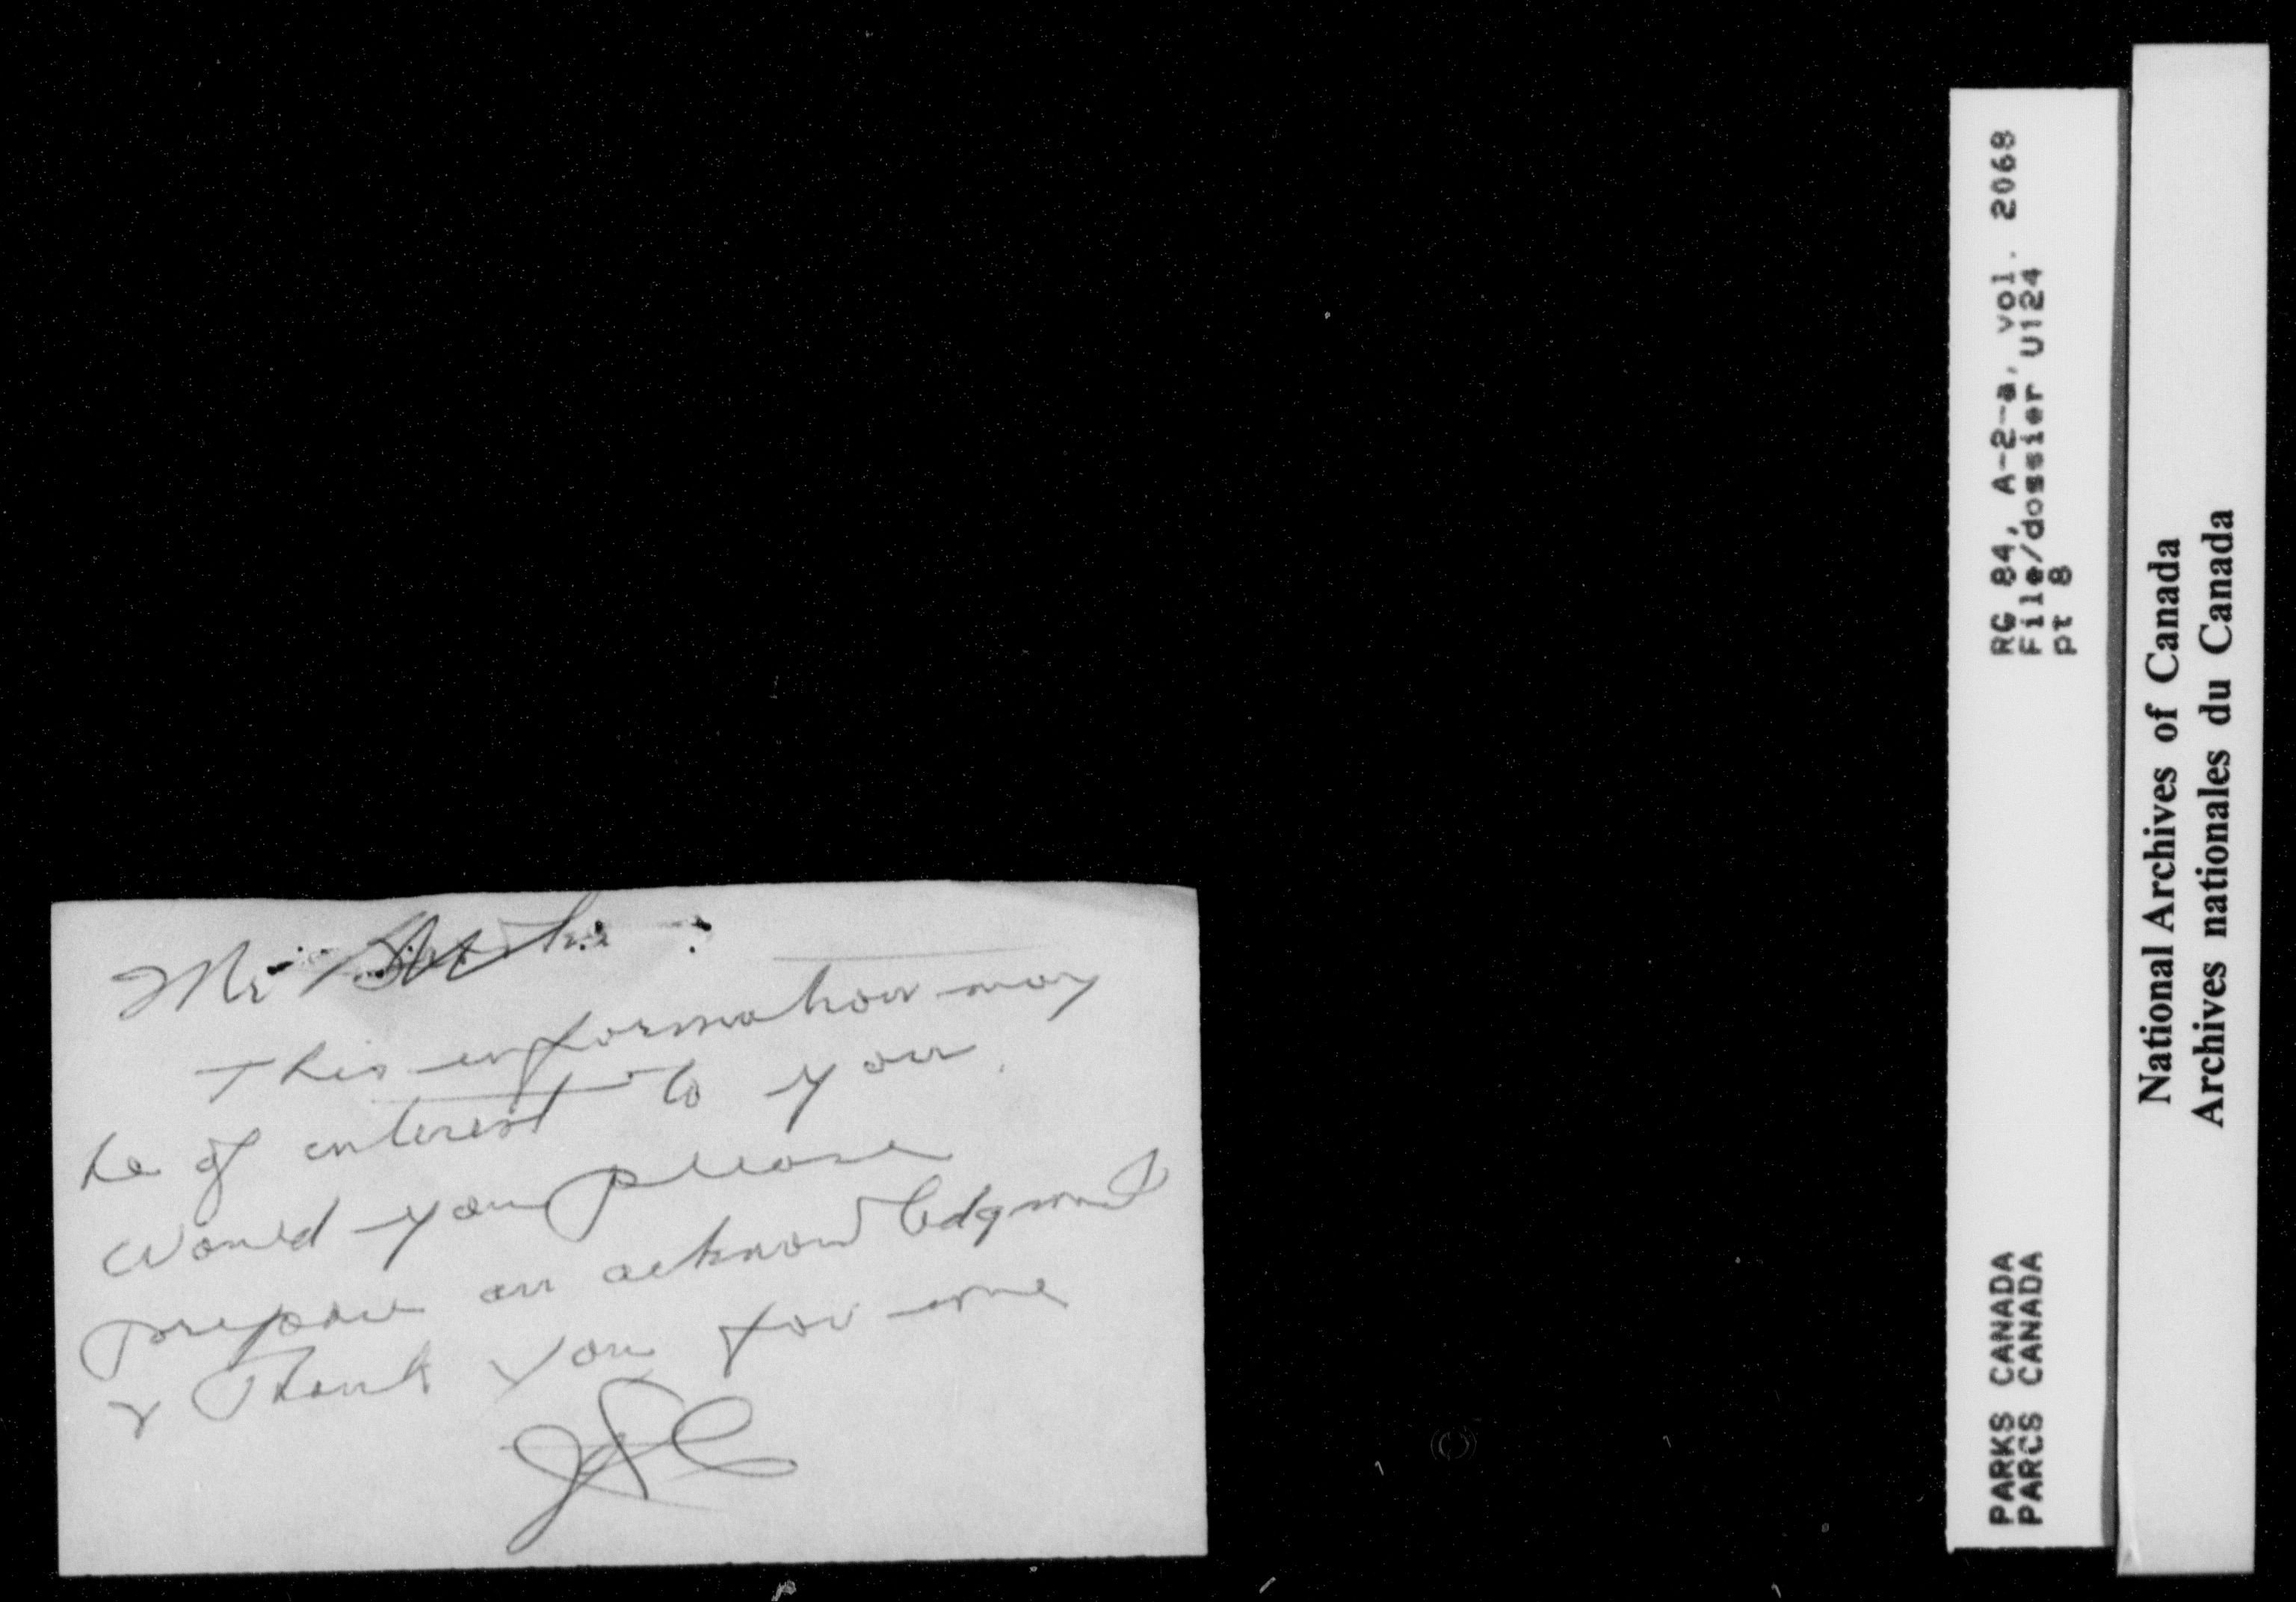 Mr
This information may
be of interest to you.
Would you please
prepare an acknowledgment
& Thank you for me
RG 84, A-2-a, vol. 2068
File/dossier U124
pt 8
PARKS CANADA
PARCS CANADA
National Archives of Canada
Archives nationales du Canada